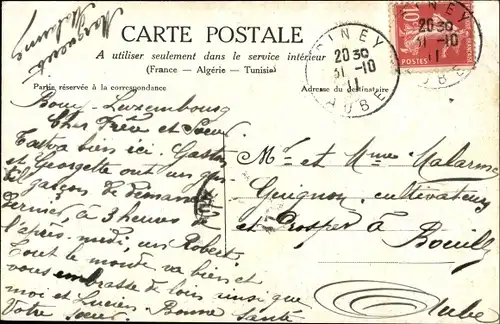 CARTE POSTALE
A utiliser seulement dans le service intérieur
(France — Algérie — Tunisie)
Partie réservée à la correspondance
Adresse du destinataire
PINEY
20 30
31 -10
11
AUBE
PINEY
20 30
31 -10
11
AUBE
10
POSTES
Luxembourg
Cher Frère et Sœur
va bien ici. Gaston
et Georgette ont un
garçon de dimanche
dernier, à 3 heures de
l'après-midi, un Robert.
Tout le monde va bien et
vous embrasse de loin ainsi que
moi et Lucien Bonne Santé
Votre sœur.
Mr et Mme
Guignon, cultivateurs
et Prosper à Bouilly
Aube